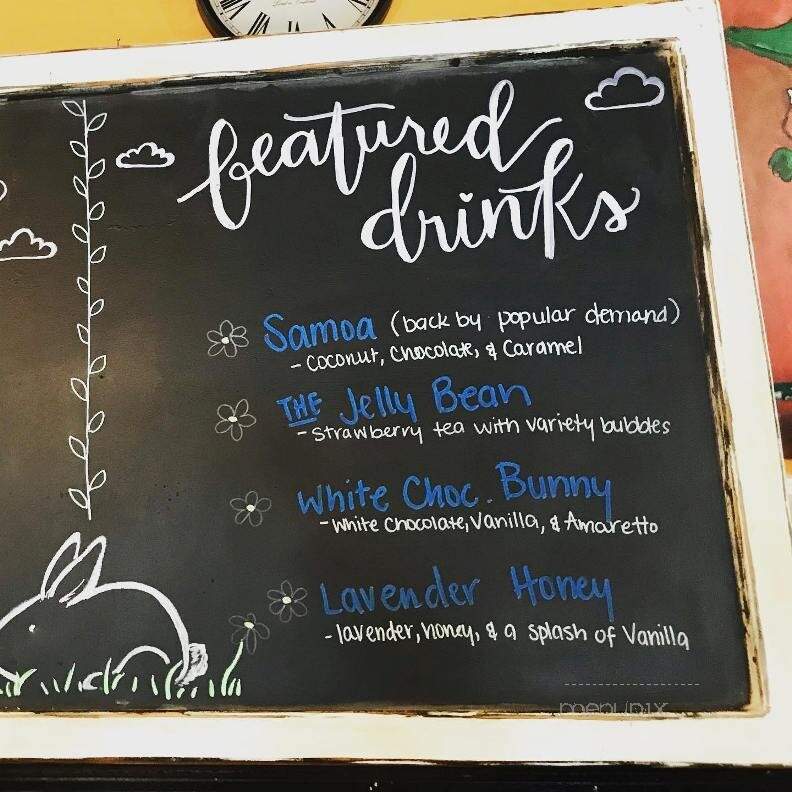 featured
drinks
Samoa (back by popular demand)
- Coconut, Chocolate, & Caramel
THE Jelly Bean
- Strawberry tea with variety bubbles
White Choc. Bunny
- White Chocolate, Vanilla, & Amaretto
Lavender Honey
- lavender, honey, & a splash of Vanilla
menupix